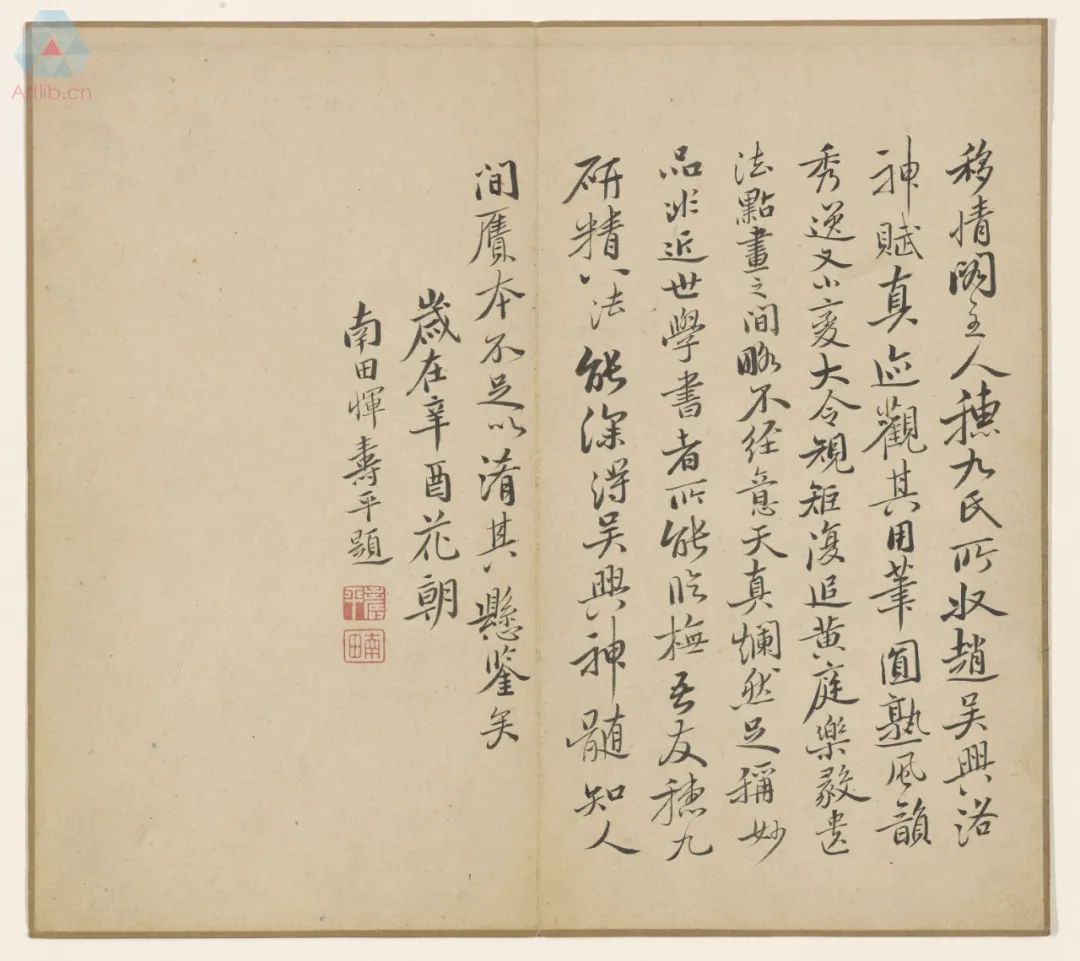 移情閣主人穗九氏所收趙吳興洛
神賦真迹觀其用筆圓熟風韻
秀逸又小變大令規矩復追黃庭樂毅遺
法點畫之間略不経意天真爛然足稱妙
品非近世學書者所能臨橅吾友穗九
研精八法能深得吳興神髓知人
間贗本不足以淆其懸鑒矣
歲在辛酉花朝
南田惲壽平題
壽平
南田
Artlib.cn